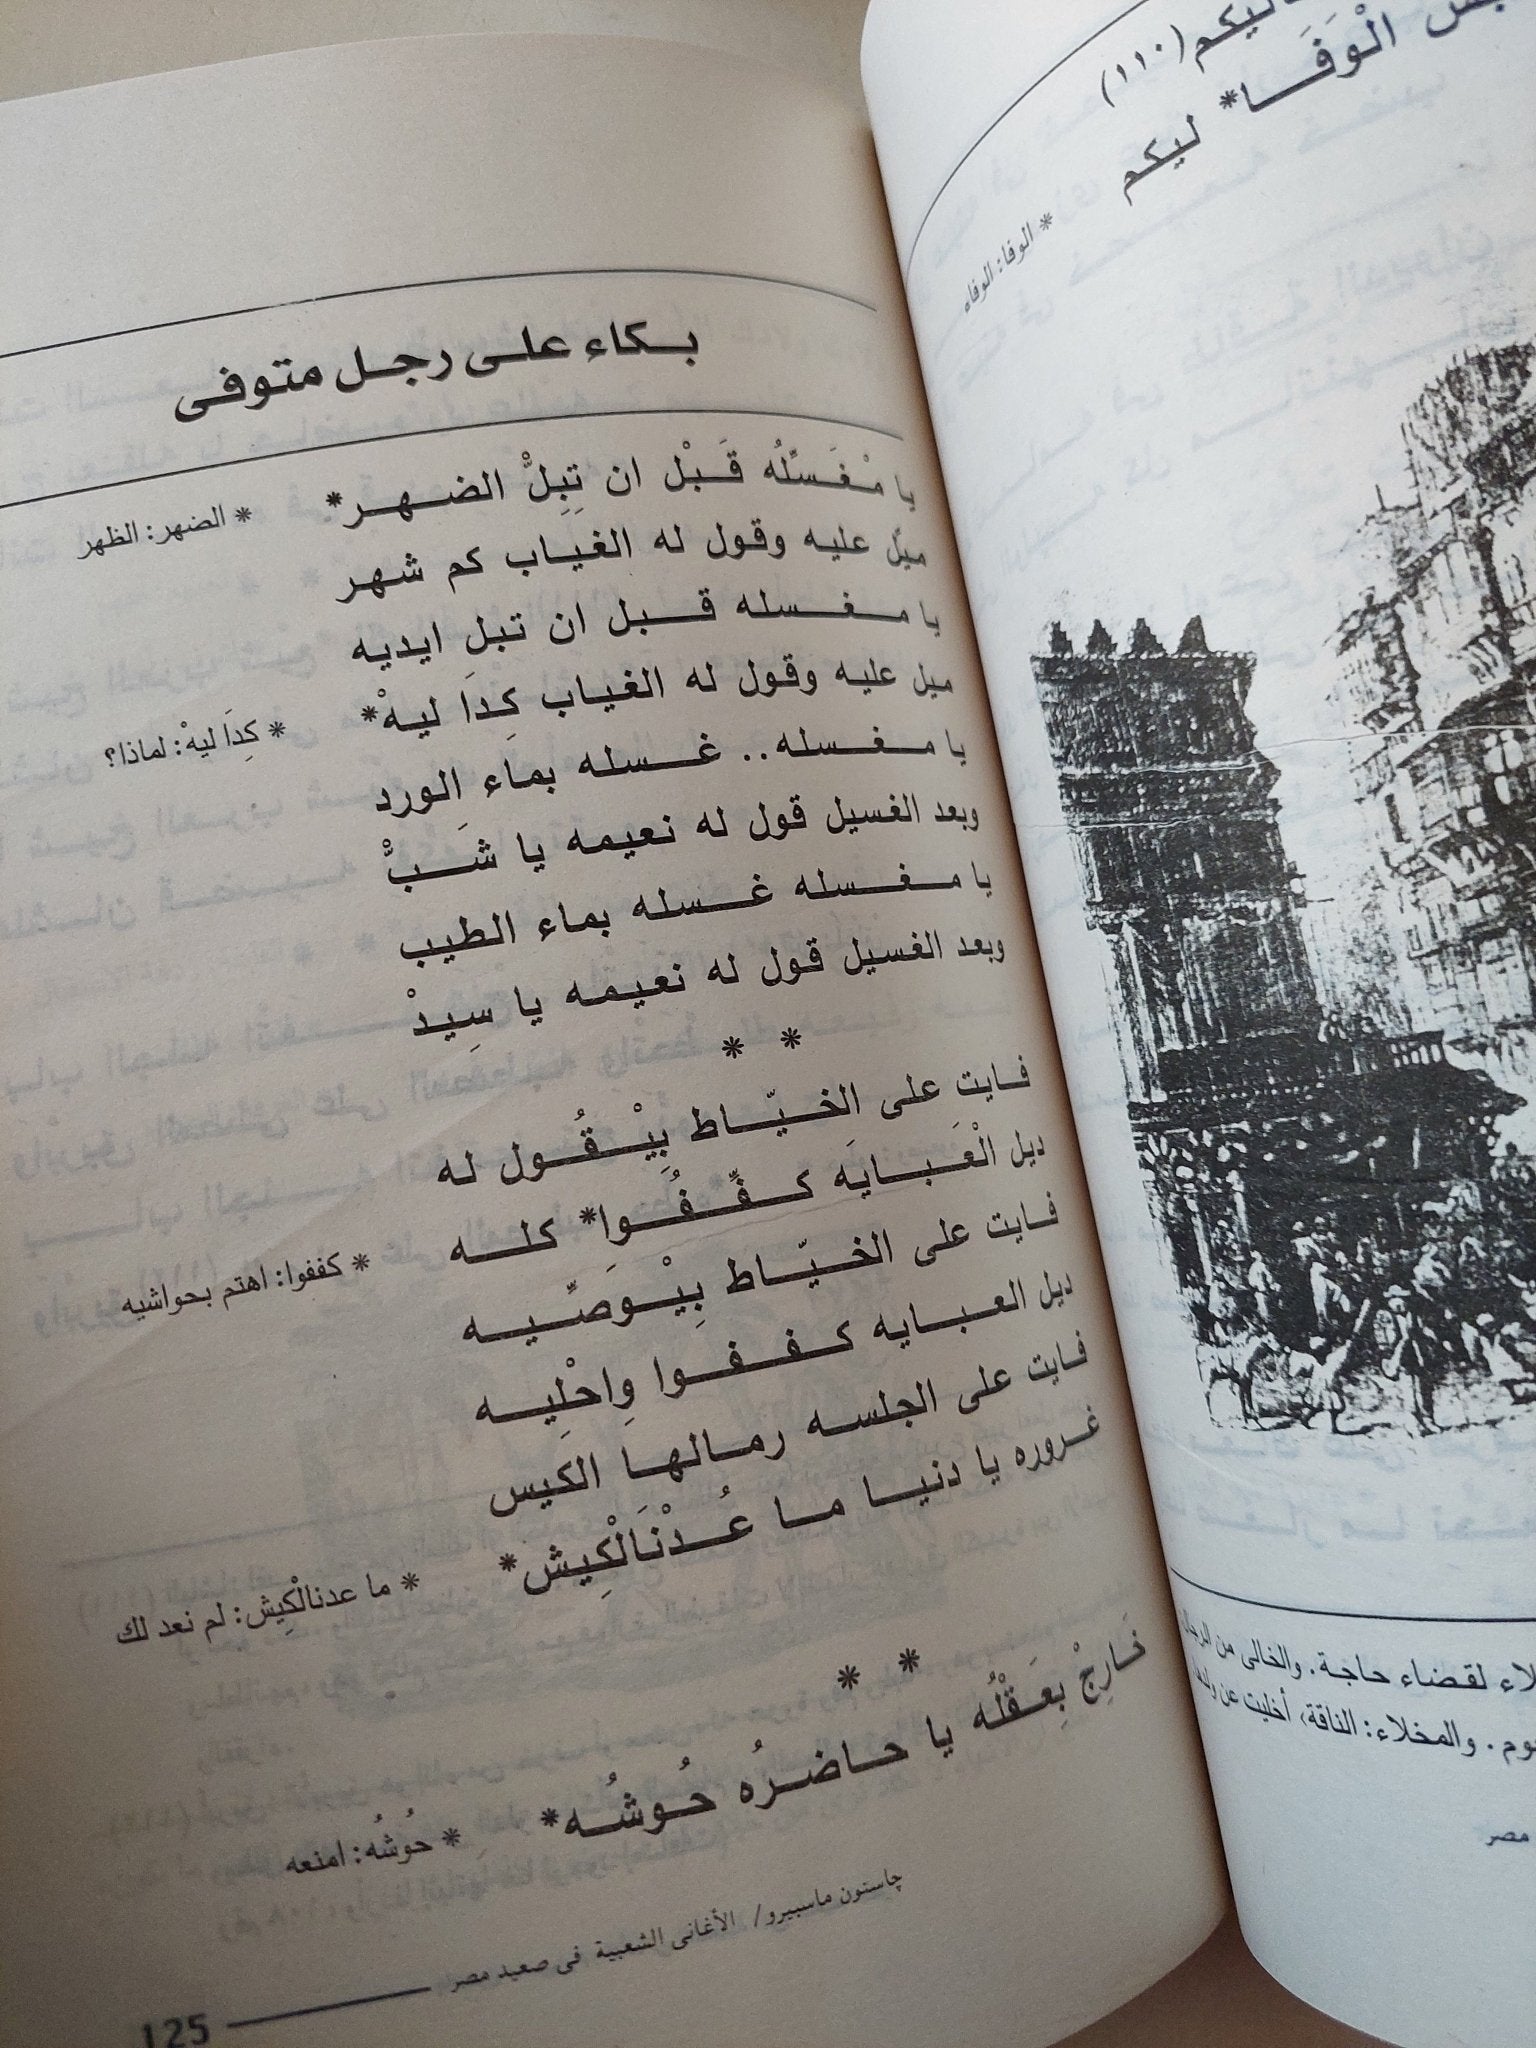 ليكم (١١٠)
الْوَفَـــا* ليكم
* الوفا: الوفاه
لاء لقضاء حاجة. والخالى من الرجال
وم. والمخلاء: الناقة، أخليت عن ولدها
مصر
بكاء على رجل متوفى
يا مْغَسَّلُه قَبْل ان تِبِلُّ الضهر*
* الضهر: الظهر
ميل عليه وقول له الغياب كم شهر
يا مغسله قبل ان تبل ايديه
ميل عليه وقول له الغياب كِدَا ليهْ*
* كِدَا ليهْ: لماذا؟
يا مغسله.. غسله بماء الورد
وبعد الغسيل قول له نعيمه يا شَبْ
يا مغسله غسله بماء الطيب
وبعد الغسيل قول له نعيمه يا سِيدْ
* *
فايت على الخيّاط بِيْقُول له
ديل الْعَبايَه كفِّفُوا* كله
* كففوا: اهتم بحواشيه
فايت على الخيّاط بِيْوَصِّيه
ديل العبايه كففوا وِاحْلِيه
فايت على الجلسه رمالها الكيس
غروره يا دنيا ما عُدْنَالْكِيش*
* ما عدنالْكِيش: لم نعد لك
* *
خَارِجْ بِعَقْلُه يا حاضرُه حُوشُه*
* حُوشُه: امنعه
جاستون ماسبيرو/ الأغانى الشعبية فى صعيد مصر
125